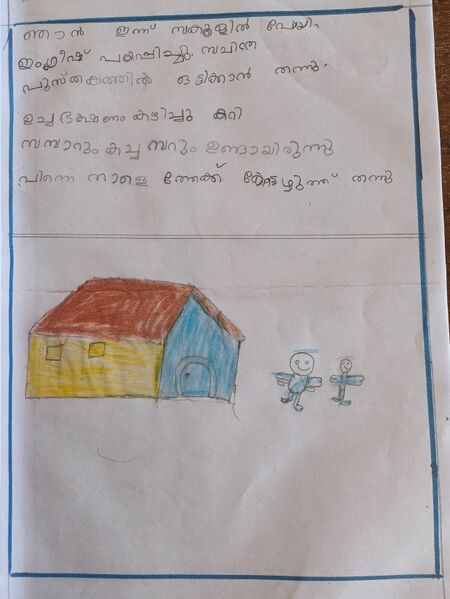 ഞാൻ ഇന്ന് സ്കൂളിൽ പോയി.
ഇംഗ്ലീഷ് പഠിപ്പിച്ചു. സചിത്ര
പുസ്തകത്തിൽ ഒട്ടിക്കാൻ തന്നു.
ഉച്ച ഭക്ഷണം കഴിച്ചു കറി
സമ്പാറും കച്ച മ്പറും ഉണ്ടായിരുന്നു
പിന്നെ നാളെ ത്തേക്ക് തന്നു